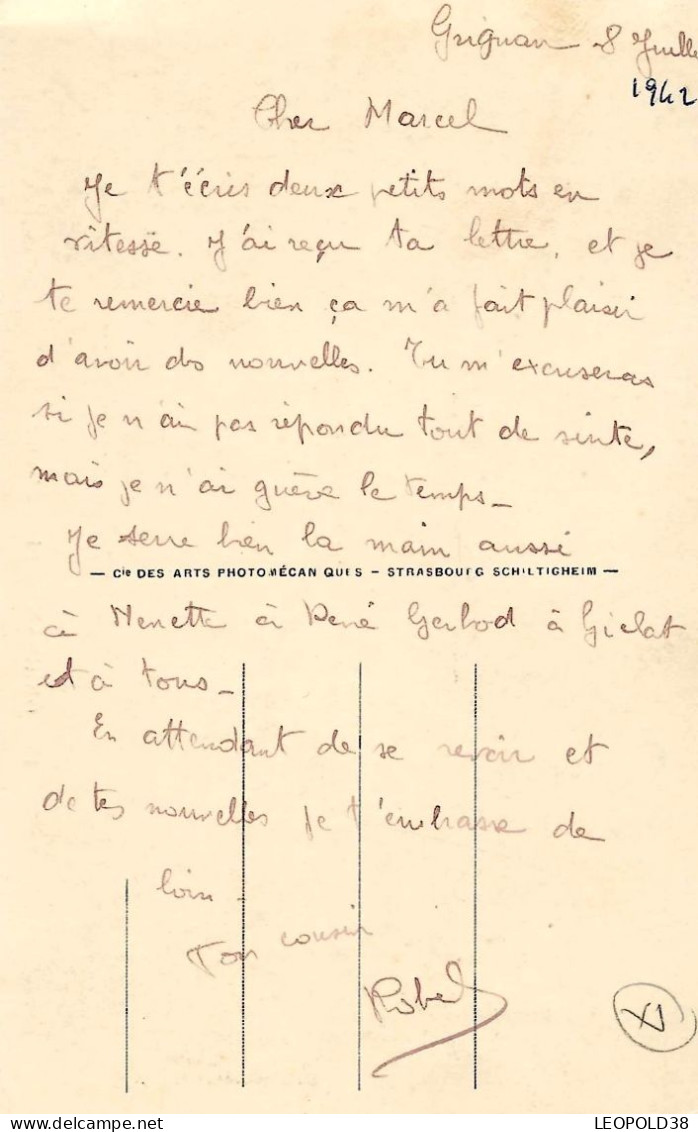 Grignan 8 Juille
1942
Cher Marcel
Je t'écris deux petits mots en
vitesse. J'ai reçu ta lettre, et je
te remercie bien ça m'a fait plaisir
d'avoir des nouvelles. Tu m'excuseras
si je n'ai pas répondu tout de suite,
mais je n'ai guère le temps_
Je serre bien la main aussi
— Cie DES ARTS PHOTOMÉCAN QUES – STRASBOURG SCHILTIGHEIM —
à Nenette à René Gerbod à
et à tous_
En attendant de se revoir et
de tes nouvelles je t'embrasse de
loin_
Ton cousin
Robert
XI
LEOPOLD38